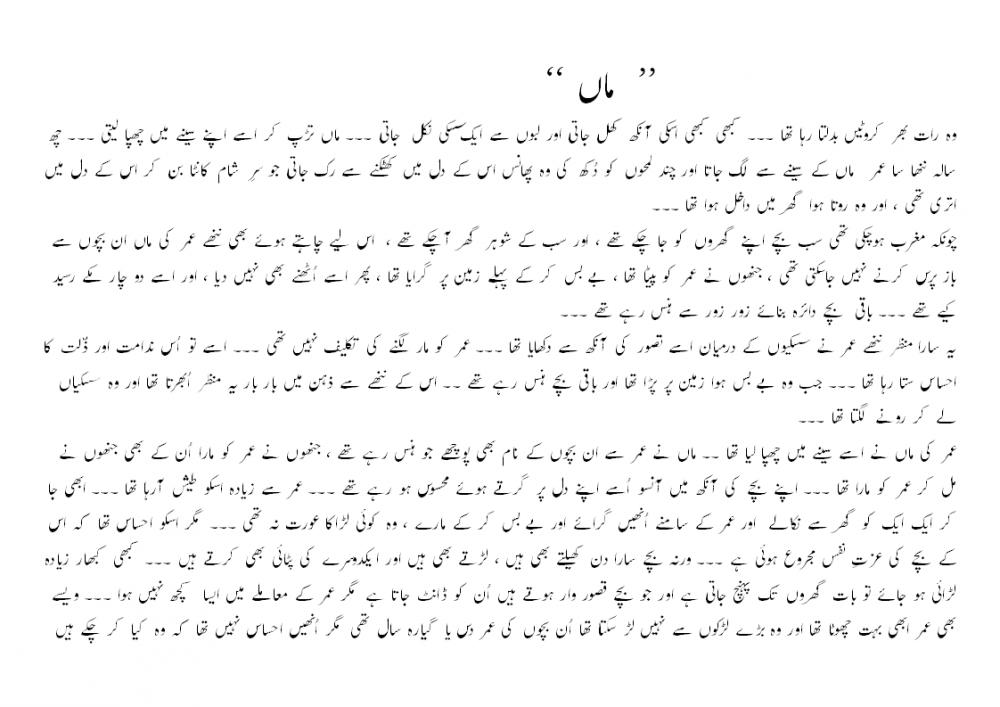 ’’ ماں ‘‘
وہ رات بھر کروٹیں بدلتا رہا تھا ۔۔۔ کبھی کبھی اسکی آنکھ کھل جاتی اور لبوں سے ایک سسکی نکل جاتی ۔۔۔ ماں تڑپ کر اسے اپنے سینے میں چھپا لیتی ۔۔۔ چھ
سالہ ننھا سا عمر ماں کے سینے سے لگ جاتا اور چند لمحوں کو دُکھ کی وہ پھانس اس کے دل میں کھٹکنے سے رک جاتی جو سرِ شام کانٹا بن کر اس کے دل میں
اتری تھی ، اور وہ روتا ہوا گھر میں داخل ہوا تھا ۔۔۔
چونکہ مغرب ہوچکی تھی سب بچے اپنے گھروں کو جا چکے تھے ، اور سب کے شوہر گھر آ چکے تھے ، اس لیے چاہتے ہوئے بھی ننھے عمر کی ماں ان بچوں سے
باز پرس کرنے نہیں جاسکتی تھی ، جنھوں نے عمر کو پیٹا تھا ، بے بس کر کے پہلے زمین پر گرایا تھا ، پھر اسے اُٹھنے بھی نہیں دیا ، اور اسے دو چار مکے رسید
کیے تھے ۔۔۔ باقی بچے دائرہ بنائے زور زور سے ہنس رہے تھے ۔۔۔
یہ سارا منظر ننھے عمر نے سسکیوں کے درمیان اسے تصور کی آنکھ سے دکھایا تھا ۔۔۔ عمر کو مار لگنے کی تکلیف نہیں تھی ۔۔۔ اسے تو اُس ندامت اور ذّلت کا
احساس ستا رہا تھا ۔۔۔ جب وہ بے بس ہوا زمین پر پڑا تھا اور باقی بچے ہنس رہے تھے ۔۔ اس کے ننھے سے ذہن میں بار بار یہ منظر اُبھرتا تھا اور وہ سسکیاں
لے کر رونے لگتا تھا ۔۔۔
عمر کی ماں نے اسے سینے میں چھپا لیا تھا ۔۔ ماں نے عمر سے ان بچوں کے نام بھی پوچھے جو ہنس رہے تھے ، جنھوں نے عمر کو مارا اُن کے بھی جنھوں نے
مل کر عمر کو مارا تھا ۔۔۔ اپنے بچے کی آنکھ میں آنسو اُسے اپنے دل پر گرتے ہوئے محسوس ہو رہے تھے ۔۔۔ عمر سے زیادہ اسکو طیش آرہا تھا ۔۔۔ ابھی جا
کر ایک ایک کو گھر سے نکالے اور عمر کے سامنے اُنھیں گرائے اور بے بس کر کے مارے ، وہ کوئی لڑاکا عورت نہ تھی ۔۔۔ مگر اسکو احساس تھا کہ اس
کے بچے کی عزتِ نفس مجروع ہوئی ہے ۔۔۔ ورنہ بچے سارا دن کھیلتے بھی ہیں ، لڑتے بھی ہیں اور ایکدوسرے کی پٹائی بھی کرتے ہیں ۔۔۔ کبھی کبھار زیادہ
لڑائی ہو جائے تو بات گھروں تک پہنچ جاتی ہے اور جو بچے قصور وار ہوتے ہیں اُن کو ڈانٹ جاتا ہے مگر عمر کے معاملے میں ایسا کچھ نہیں ہوا ۔۔۔ ویسے
بھی عمر ابھی بہت چھوٹا تھا اور وہ بڑے لڑکوں سے نہیں لڑ سکتا تھا اُن بچوں کی عمر دس یا گیارہ سال تھی مگر اُنھیں احساس نہیں تھا کہ وہ کیا کر چکے ہیں